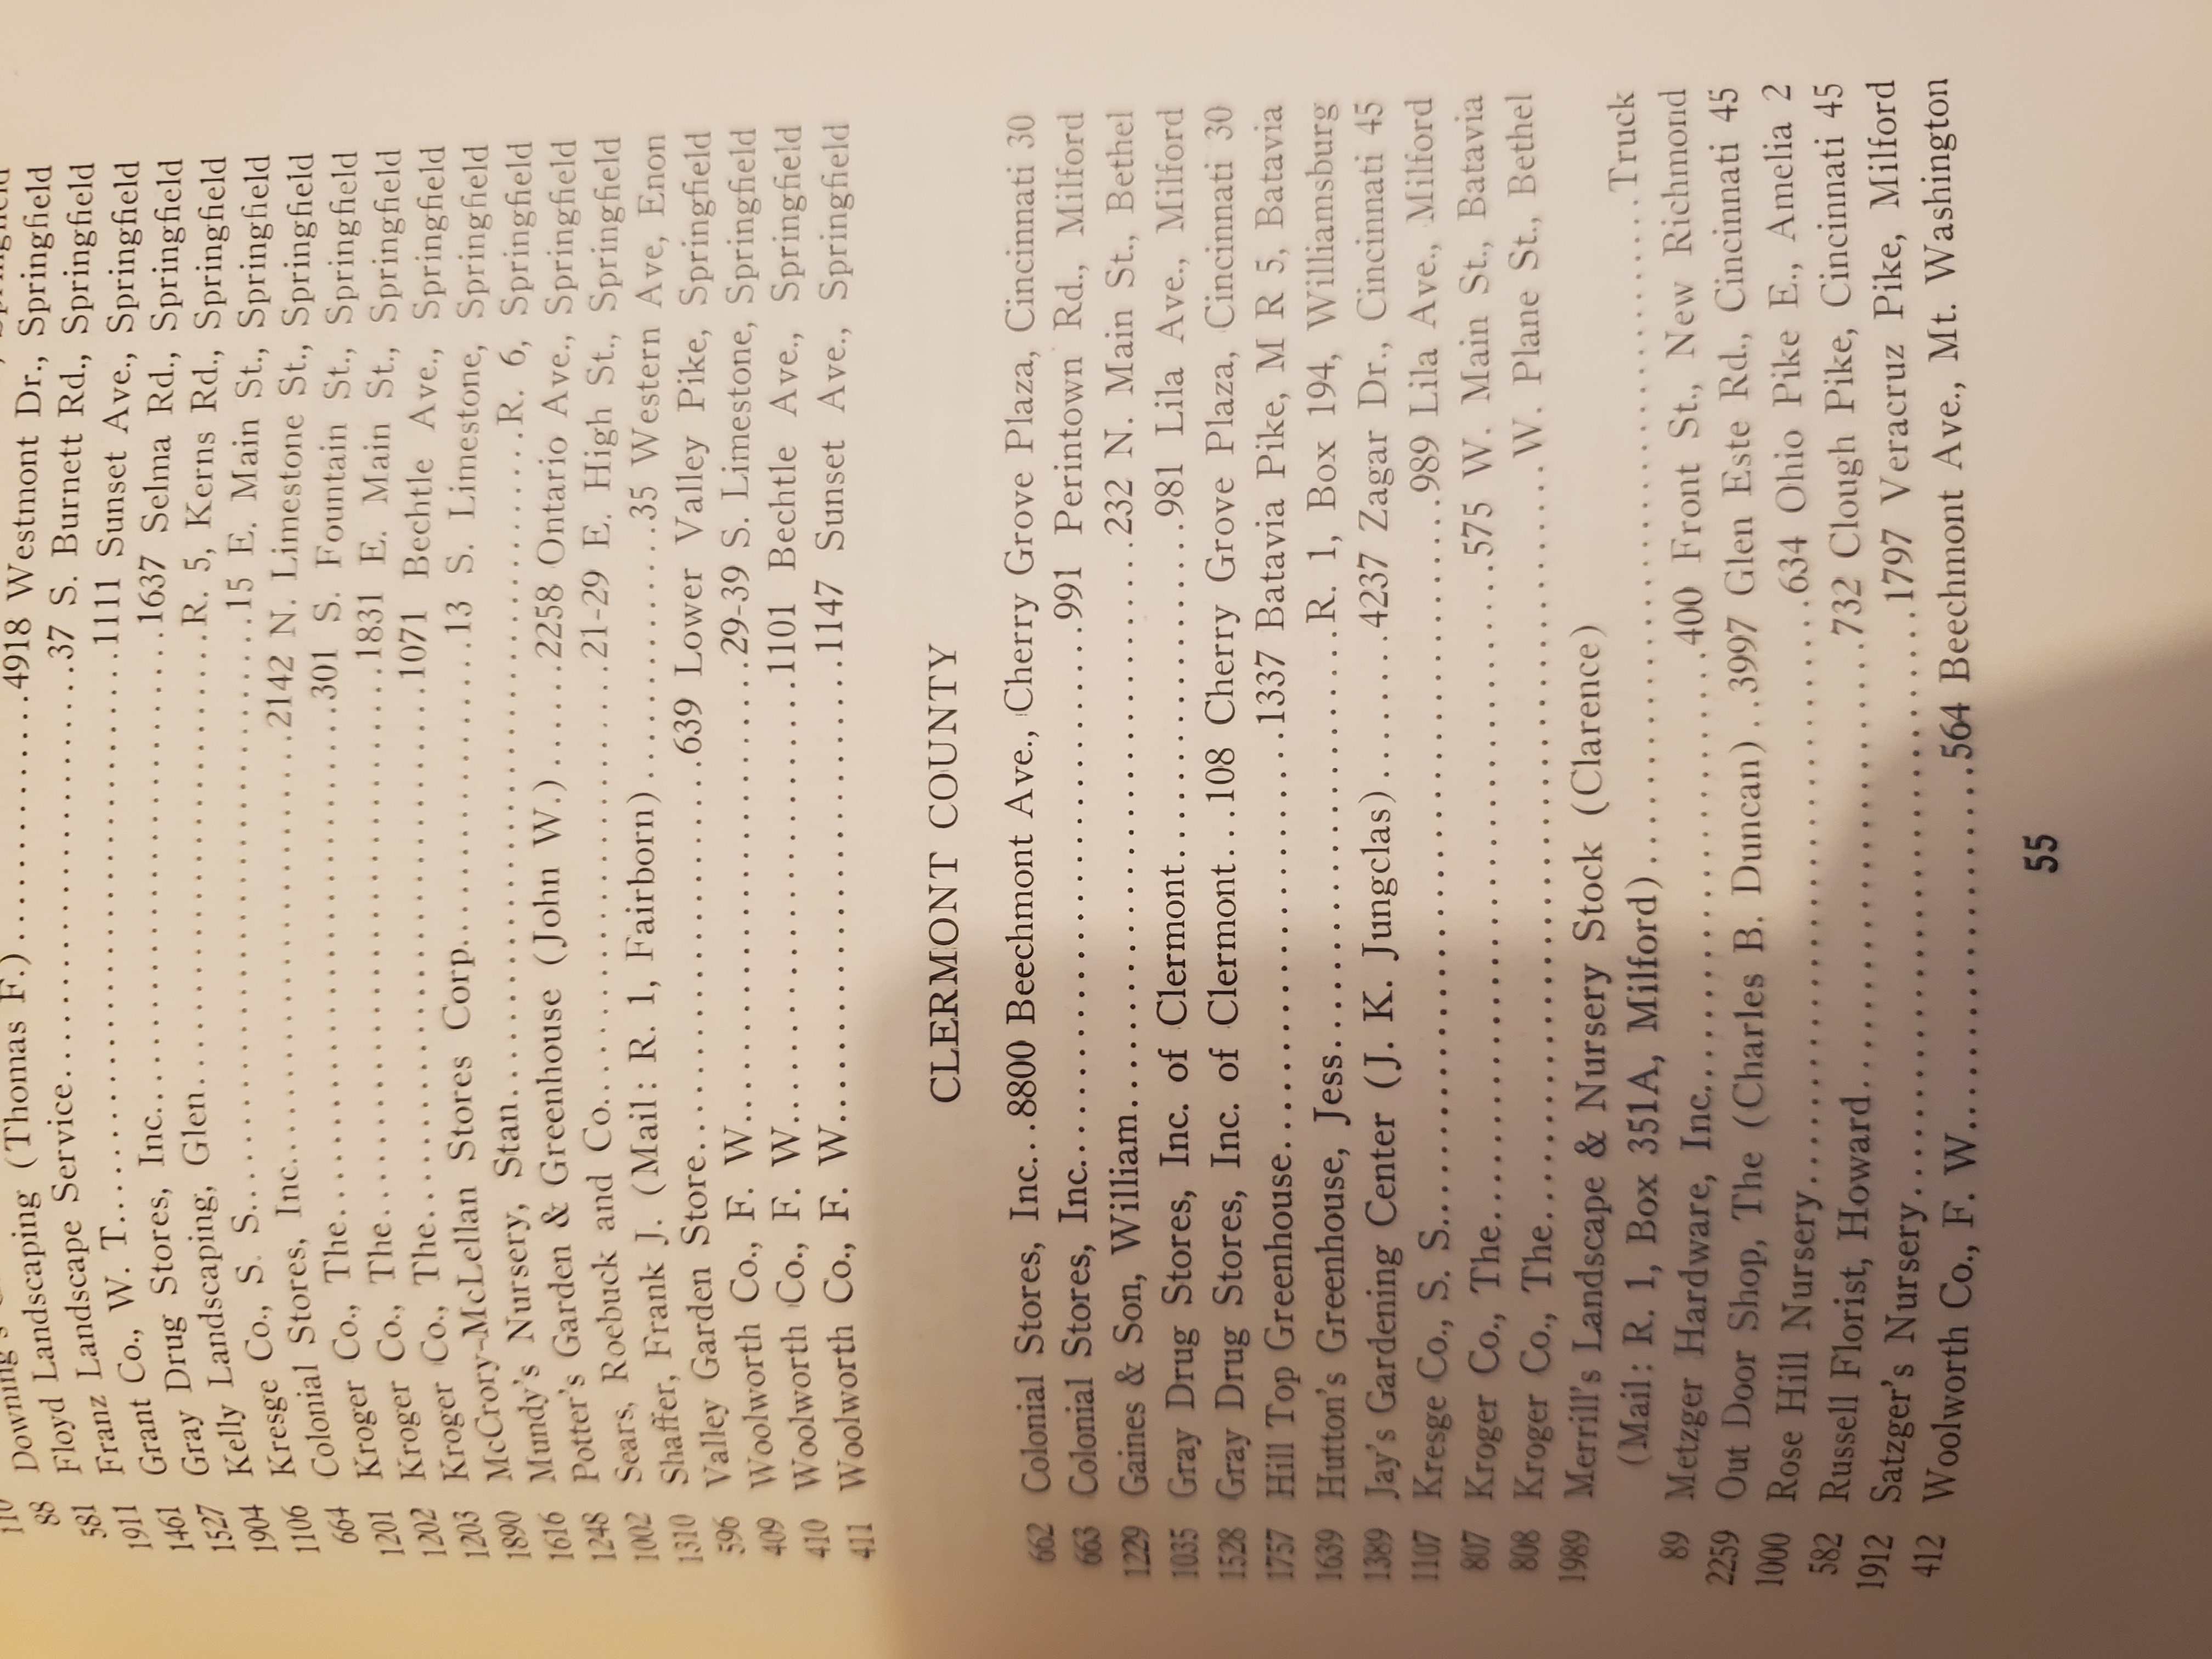 88 Downing's
581 Floyd Landscaping (Thomas F.)....................4918 Westmont Dr., Springfield
1911 Franz Landscape Service....................37 S. Burnett Rd., Springfield
1461 Grant Co., W. T....................1111 Sunset Ave., Springfield
1527 Gray Drug Stores, Inc....................1637 Selma Rd., Springfield
1904 Kelly Landscaping, Glen....................R. 5, Kerns Rd., Springfield
1106 Kresge Co., S. S....................15 E. Main St., Springfield
664 Colonial Stores, Inc....................2142 N. Limestone St., Springfield
1201 Kroger Co., The....................301 S. Fountain St., Springfield
1202 Kroger Co., The....................1831 E. Main St., Springfield
1203 Kroger Co., The....................1071 Bechtle Ave., Springfield
1890 McCrory-McLellan Stores Corp....................13 S. Limestone, Springfield
1616 Mundy's Nursery, Stan....................R. 6, Springfield
1248 Potter's Garden & Greenhouse (John W.)......2258 Ontario Ave., Springfield
1002 Sears, Roebuck and Co....................21-29 E. High St., Springfield
1310 Shaffer, Frank J. (Mail: R. 1, Fairborn)..............35 Western Ave, Enon
596 Valley Garden Store....................639 Lower Valley Pike, Springfield
409 Woolworth Co., F. W....................29-39 S. Limestone, Springfield
410 Woolworth Co., F. W....................1101 Bechtle Ave., Springfield
411 Woolworth Co., F. W....................1147 Sunset Ave., Springfield
CLERMONT COUNTY
662 Colonial Stores, Inc...8800 Beechmont Ave., Cherry Grove Plaza, Cincinnati 30
663 Colonial Stores, Inc....................991 Perintown Rd., Milford
1229 Gaines & Son, William....................232 N. Main St., Bethel
1035 Gray Drug Stores, Inc. of Clermont....................981 Lila Ave., Milford
1528 Gray Drug Stores, Inc. of Clermont...108 Cherry Grove Plaza, Cincinnati 30
1757 Hill Top Greenhouse....................1337 Batavia Pike, M R 5, Batavia
1639 Hutton's Greenhouse, Jess....................R. 1, Box 194, Williamsburg
1389 Jay's Gardening Center (J. K. Jungclas).........4237 Zagar Dr., Cincinnati 45
1107 Kresge Co., S. S....................989 Lila Ave., Milford
807 Kroger Co., The....................575 W. Main St., Batavia
808 Kroger Co., The....................W. Plane St., Bethel
1989 Merrill's Landscape & Nursery Stock (Clarence)
(Mail: R. 1, Box 351A, Milford)....................Truck
89 Metzger Hardware, Inc....................400 Front St., New Richmond
2259 Out Door Shop, The (Charles B. Duncan)..3997 Glen Este Rd., Cincinnati 45
1000 Rose Hill Nursery....................634 Ohio Pike E., Amelia 2
582 Russell Florist, Howard....................732 Clough Pike, Cincinnati 45
1912 Satzger's Nursery....................1797 Veracruz Pike, Milford
412 Woolworth Co., F. W....................564 Beechmont Ave., Mt. Washington
55